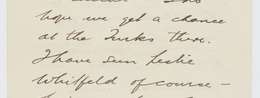 hope we get a chance
at the Turks thro.
I have seen Leslie
Whitfeld of course -